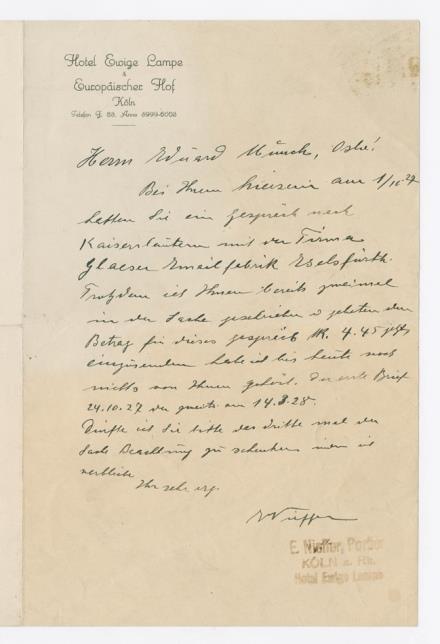 Hotel Ewige Lampe
&
Europäischer Hof
Köln
Telefon
Herrn Eduard Munch, Oslo!
Bei Ihrem hiersein am 1/10 27
hatten Sie ein Gespräch nach
Kaiserslautern mit der Firma
Glaeser Emailfabrik Eselsfürth.
Trotzdem ich Ihnen bereits zweimal
in der Sache geschrieben u gebeten den
Betrag für dieses gespräch M. 4.45
einzusenden habe ich bis heute noch
nichts von Ihnen gehört. Der erste Brief
24.10.27 der zweite am 14.3.28.
Dürfte ich Sie bitte das dritte mal der
Sache Beachtung zu schenken indem ich
verbleibe
Ihr sehr erg.
E. Nieffer, Portier
KÖLN a. Rh.
Hotel Ewige Lampe